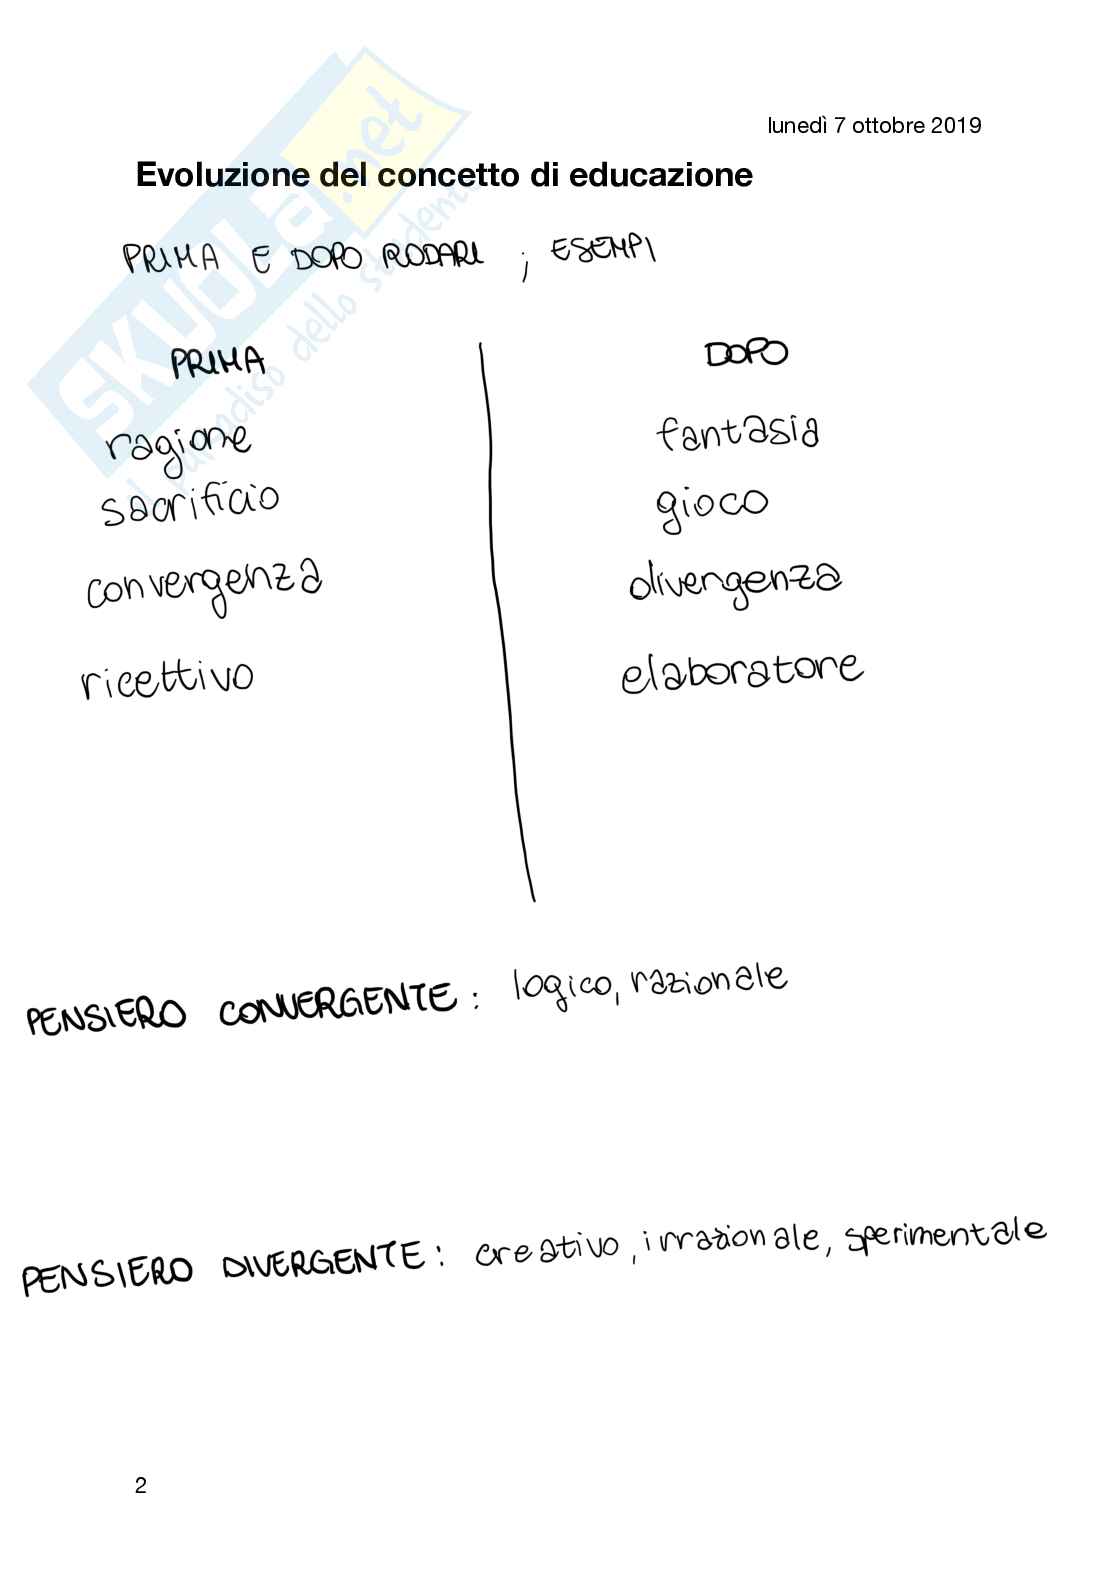 lunedì 7 ottobre 2019
Evoluzione del concetto di educazione
PRIMA E DOPO RODARI ; ESEMPI
PRIMA DOPO
ragione fantasia
sacrificio gioco
convergenza divergenza
ricettivo elaboratore
PENSIERO CONVERGENTE : logico, razionale
PENSIERO DIVERGENTE : creativo, irrazionale, sperimentale
2
SKUOLA.net
il paradiso dello studente